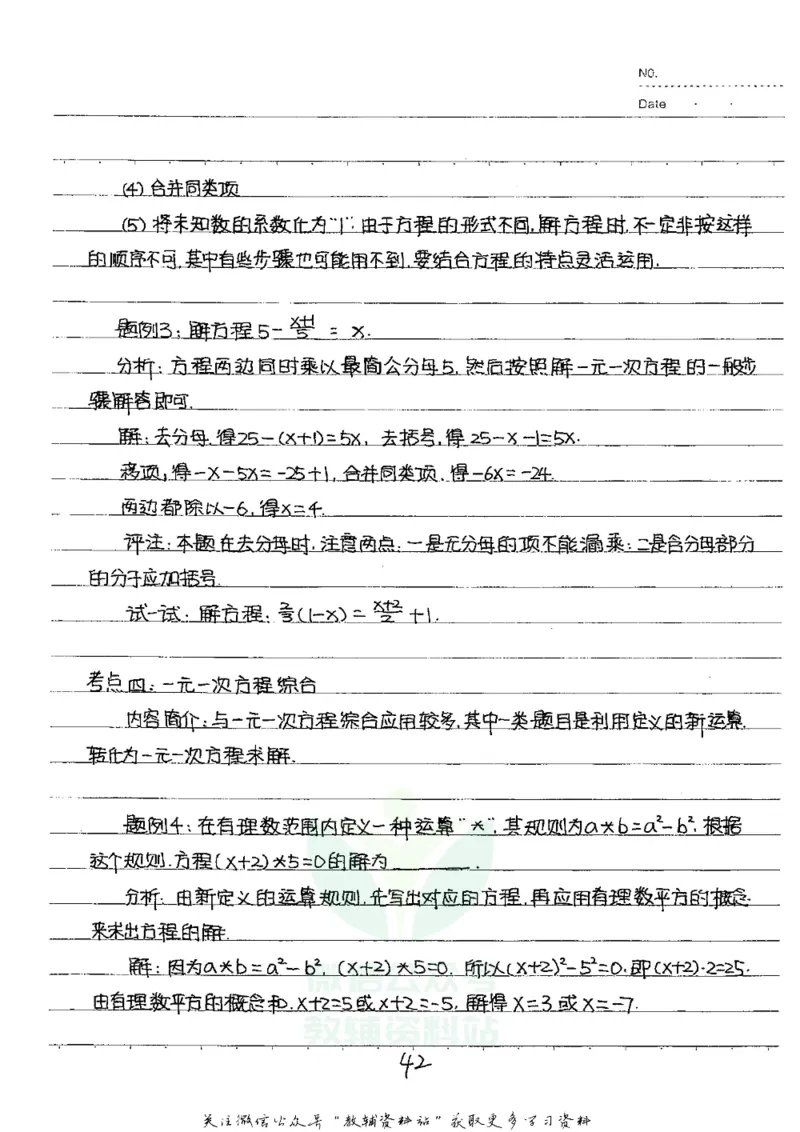 NO.
Date
(4) 合并同类项
(5) 将未知数的系数化为"1". 由于方程的形式不同,解方程时,不一定非按这样
的顺序不可,其中有些步骤也可能用不到,要结合方程的特点灵活运用.
题例3: 解方程 5-(x+1)/5 = x.
分析: 方程两边同时乘以最简公分母5, 然后按照解一元一次方程的一般步
骤解答即可.
解: 去分母,得25-(x+1)=5x, 去括号,得 25-x-1=5x.
移项,得-x-5x=-25+1, 合并同类项,得-6x=-24.
两边都除以-6,得x=4.
评注: 本题在去分母时,注意两点: 一是无分母的项不能漏乘; 二是含分母部分
的分子应加括号.
试一试: 解方程: 2/3(1-x)=(x+2)/2+1.
考点四: 一元一次方程综合
内容简介: 与一元一次方程综合应用较多,其中一类题目是利用定义的新运算,
转化为一元一次方程求解.
题例4: 在有理数范围内定义一种运算"*", 其规则为a*b=a²-b², 根据
这个规则,方程(x+2)*5=0的解为______.
分析: 由新定义的运算规则,先写出对应的方程,再应用有理数平方的概念
来求出方程的解.
解: 因为a*b=a²-b², (x+2)*5=0, 所以(x+2)²-5²=0.即(x+2)·2=25.
由有理数平方的概念和,x+2=5或x+2=-5, 解得x=3或x=-7.
微信公众号
教辅资料站
42
关注微信公众号"教辅资料站"获取更多学习资料